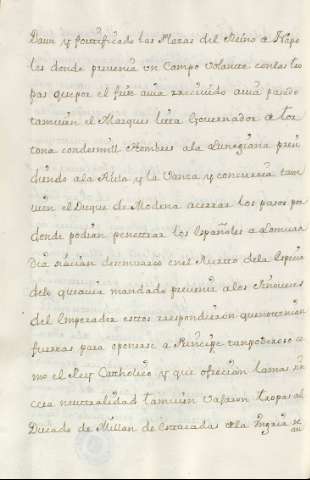 Daun y fortificado las Plazas del Reino a Napo
les donde prevenia un Campo volante con las tro
pas que por el fin avia reciuido avia pasado
tamuien el Marques Governador de Tor
tona con dos mill Hombres ala Lunegiana pren
diendo ala Aula y la Vanca y concurria tam
uien el Duque de Modena a cerrar los pasos por
donde podian penetrar los Españoles a Lomuar
dia si acian desemuarco en el Puertto dela Especia
delo que avia mandado prevenir a los Ginoveses
del Imperador estos respondieron que no tenian
fuerzas para oponerse a Principe tan poderoso co
mo el Rey Catholico y que ofrecian la mas sin
cera neutralidad tamuien vajaron tropas al
Ducado de Millan de sacadas dela Ungria se